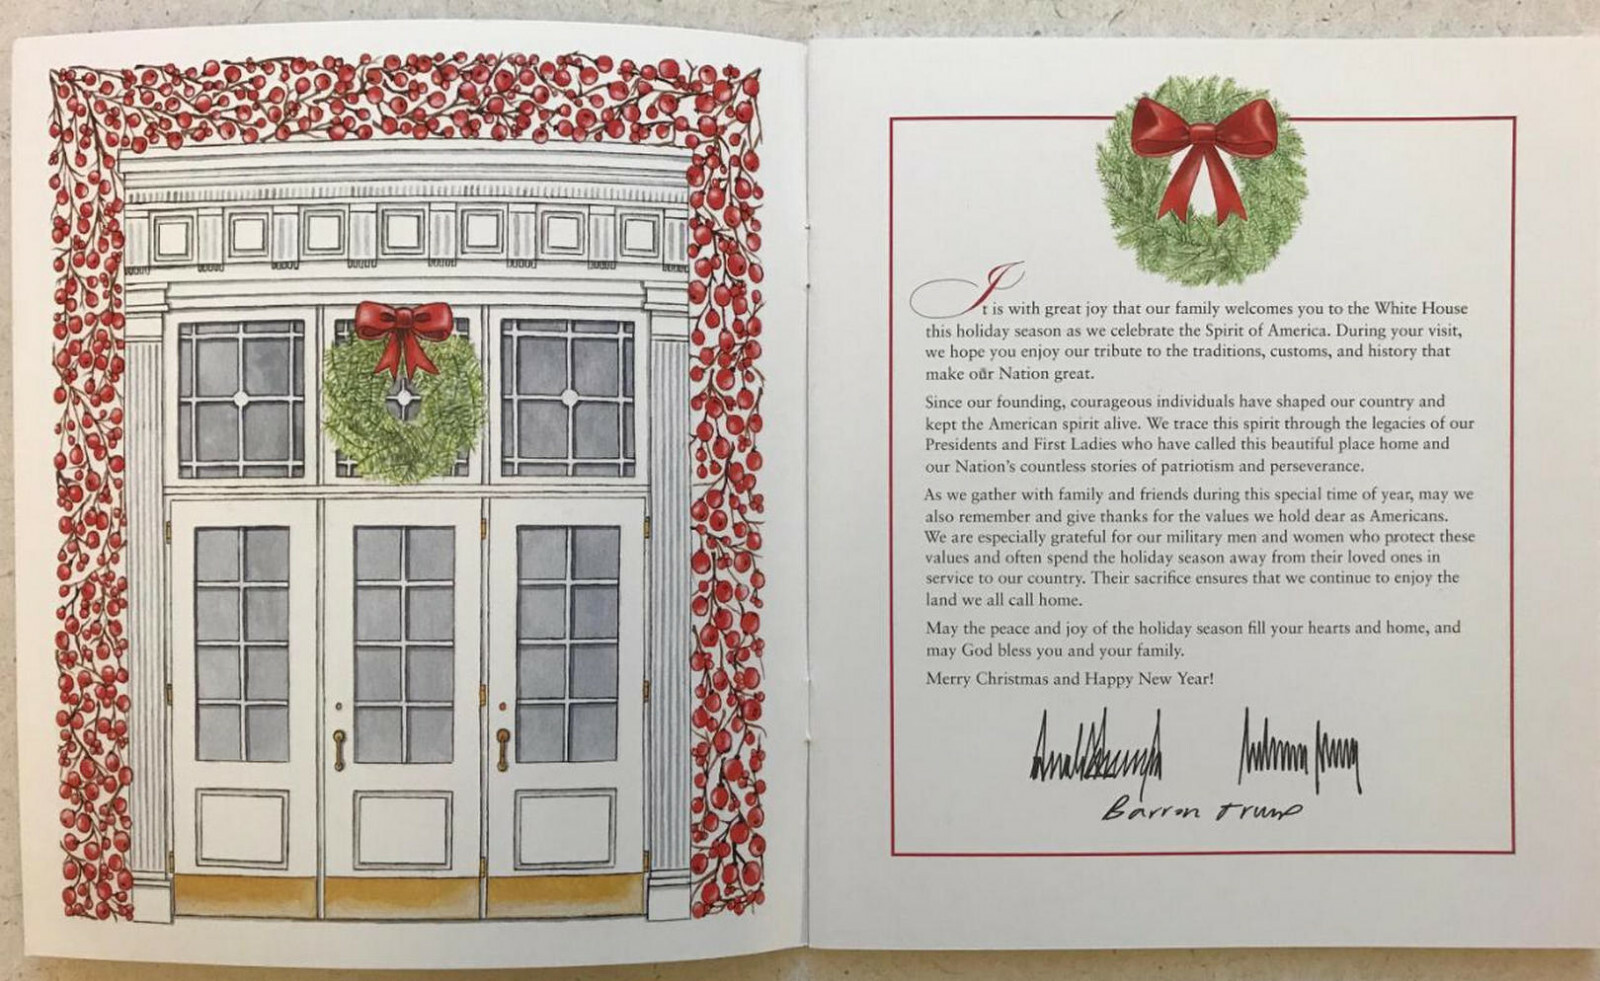 It is with great joy that our family welcomes you to the White House
this holiday season as we celebrate the Spirit of America. During your visit,
we hope you enjoy our tribute to the traditions, customs, and history that
make our Nation great.
Since our founding, courageous individuals have shaped our country and
kept the American spirit alive. We trace this spirit through the legacies of our
Presidents and First Ladies who have called this beautiful place home and
our Nation's countless stories of patriotism and perseverance.
As we gather with family and friends during this special time of year, may we
also remember and give thanks for the values we hold dear as Americans.
We are especially grateful for our military men and women who protect these
values and often spend the holiday season away from their loved ones in
service to our country. Their sacrifice ensures that we continue to enjoy the
land we all call home.
May the peace and joy of the holiday season fill your hearts and home, and
may God bless you and your family.
Merry Christmas and Happy New Year!
Barron Trump